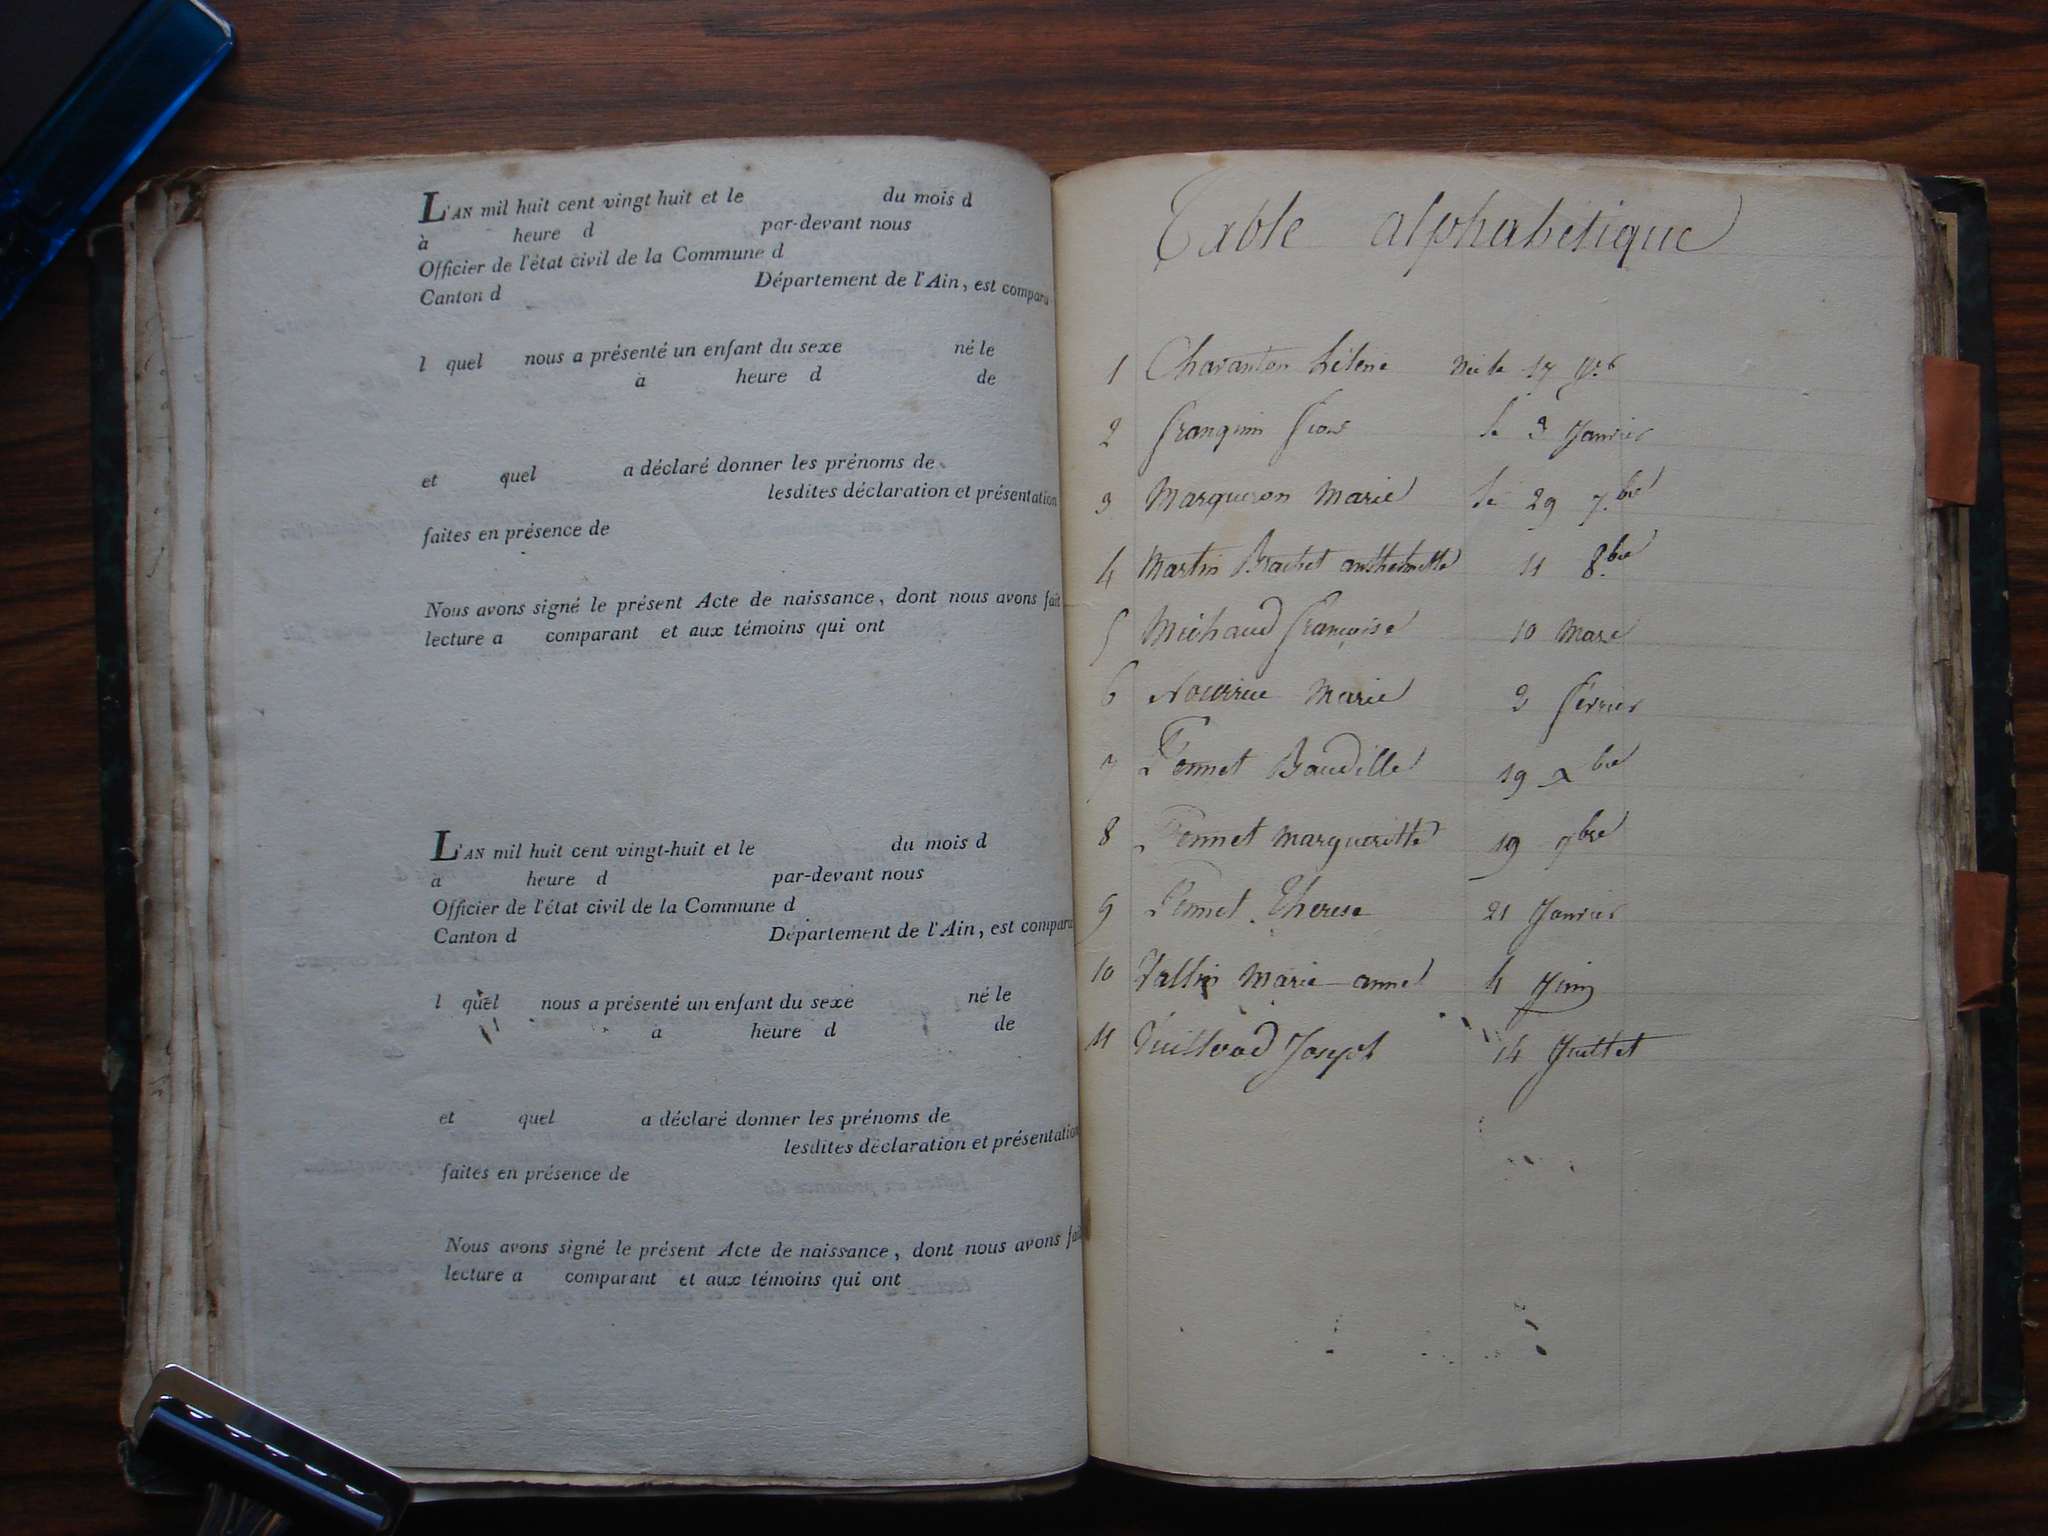 L'AN mil huit cent vingt huit et le du mois d
à heure d par-devant nous
Officier de l'état civil de la Commune d
Canton d Département de l'Ain, est comparu
l quel nous a présenté un enfant du sexe né le
à heure d de
et quel a déclaré donner les prénoms de
lesdites déclaration et présentation
faites en présence de
Nous avons signé le présent Acte de naissance, dont nous avons fait
lecture a comparant et aux témoins qui ont
L'AN mil huit cent vingt-huit et le du mois d
à heure d par-devant nous
Officier de l'état civil de la Commune d
Canton d Département de l'Ain, est comparu
l quel nous a présenté un enfant du sexe né le
a heure d de
et quel a déclaré donner les prénoms de
lesdites déclaration et présentation
faites en présence de
Nous avons signé le présent Acte de naissance, dont nous avons fait
lecture a comparant et aux témoins qui ont
Table alphabétique
1 Charanton hélène née le 17
2 franquin le 3 Janvier
3 Marqueron Marie le 29 7.bre
4 Martin Brachet 11 8.bre
5 Michaud françoise 10 Mars
6 Marie 3 février
7 Pennet Baudille 19 xbre
8 Pennet Margueritte 19 9bre
9 Pennet Therese 21 Janvier
10 Vallin Marie anne 4 Juin
11 Joseph 14 Juillet